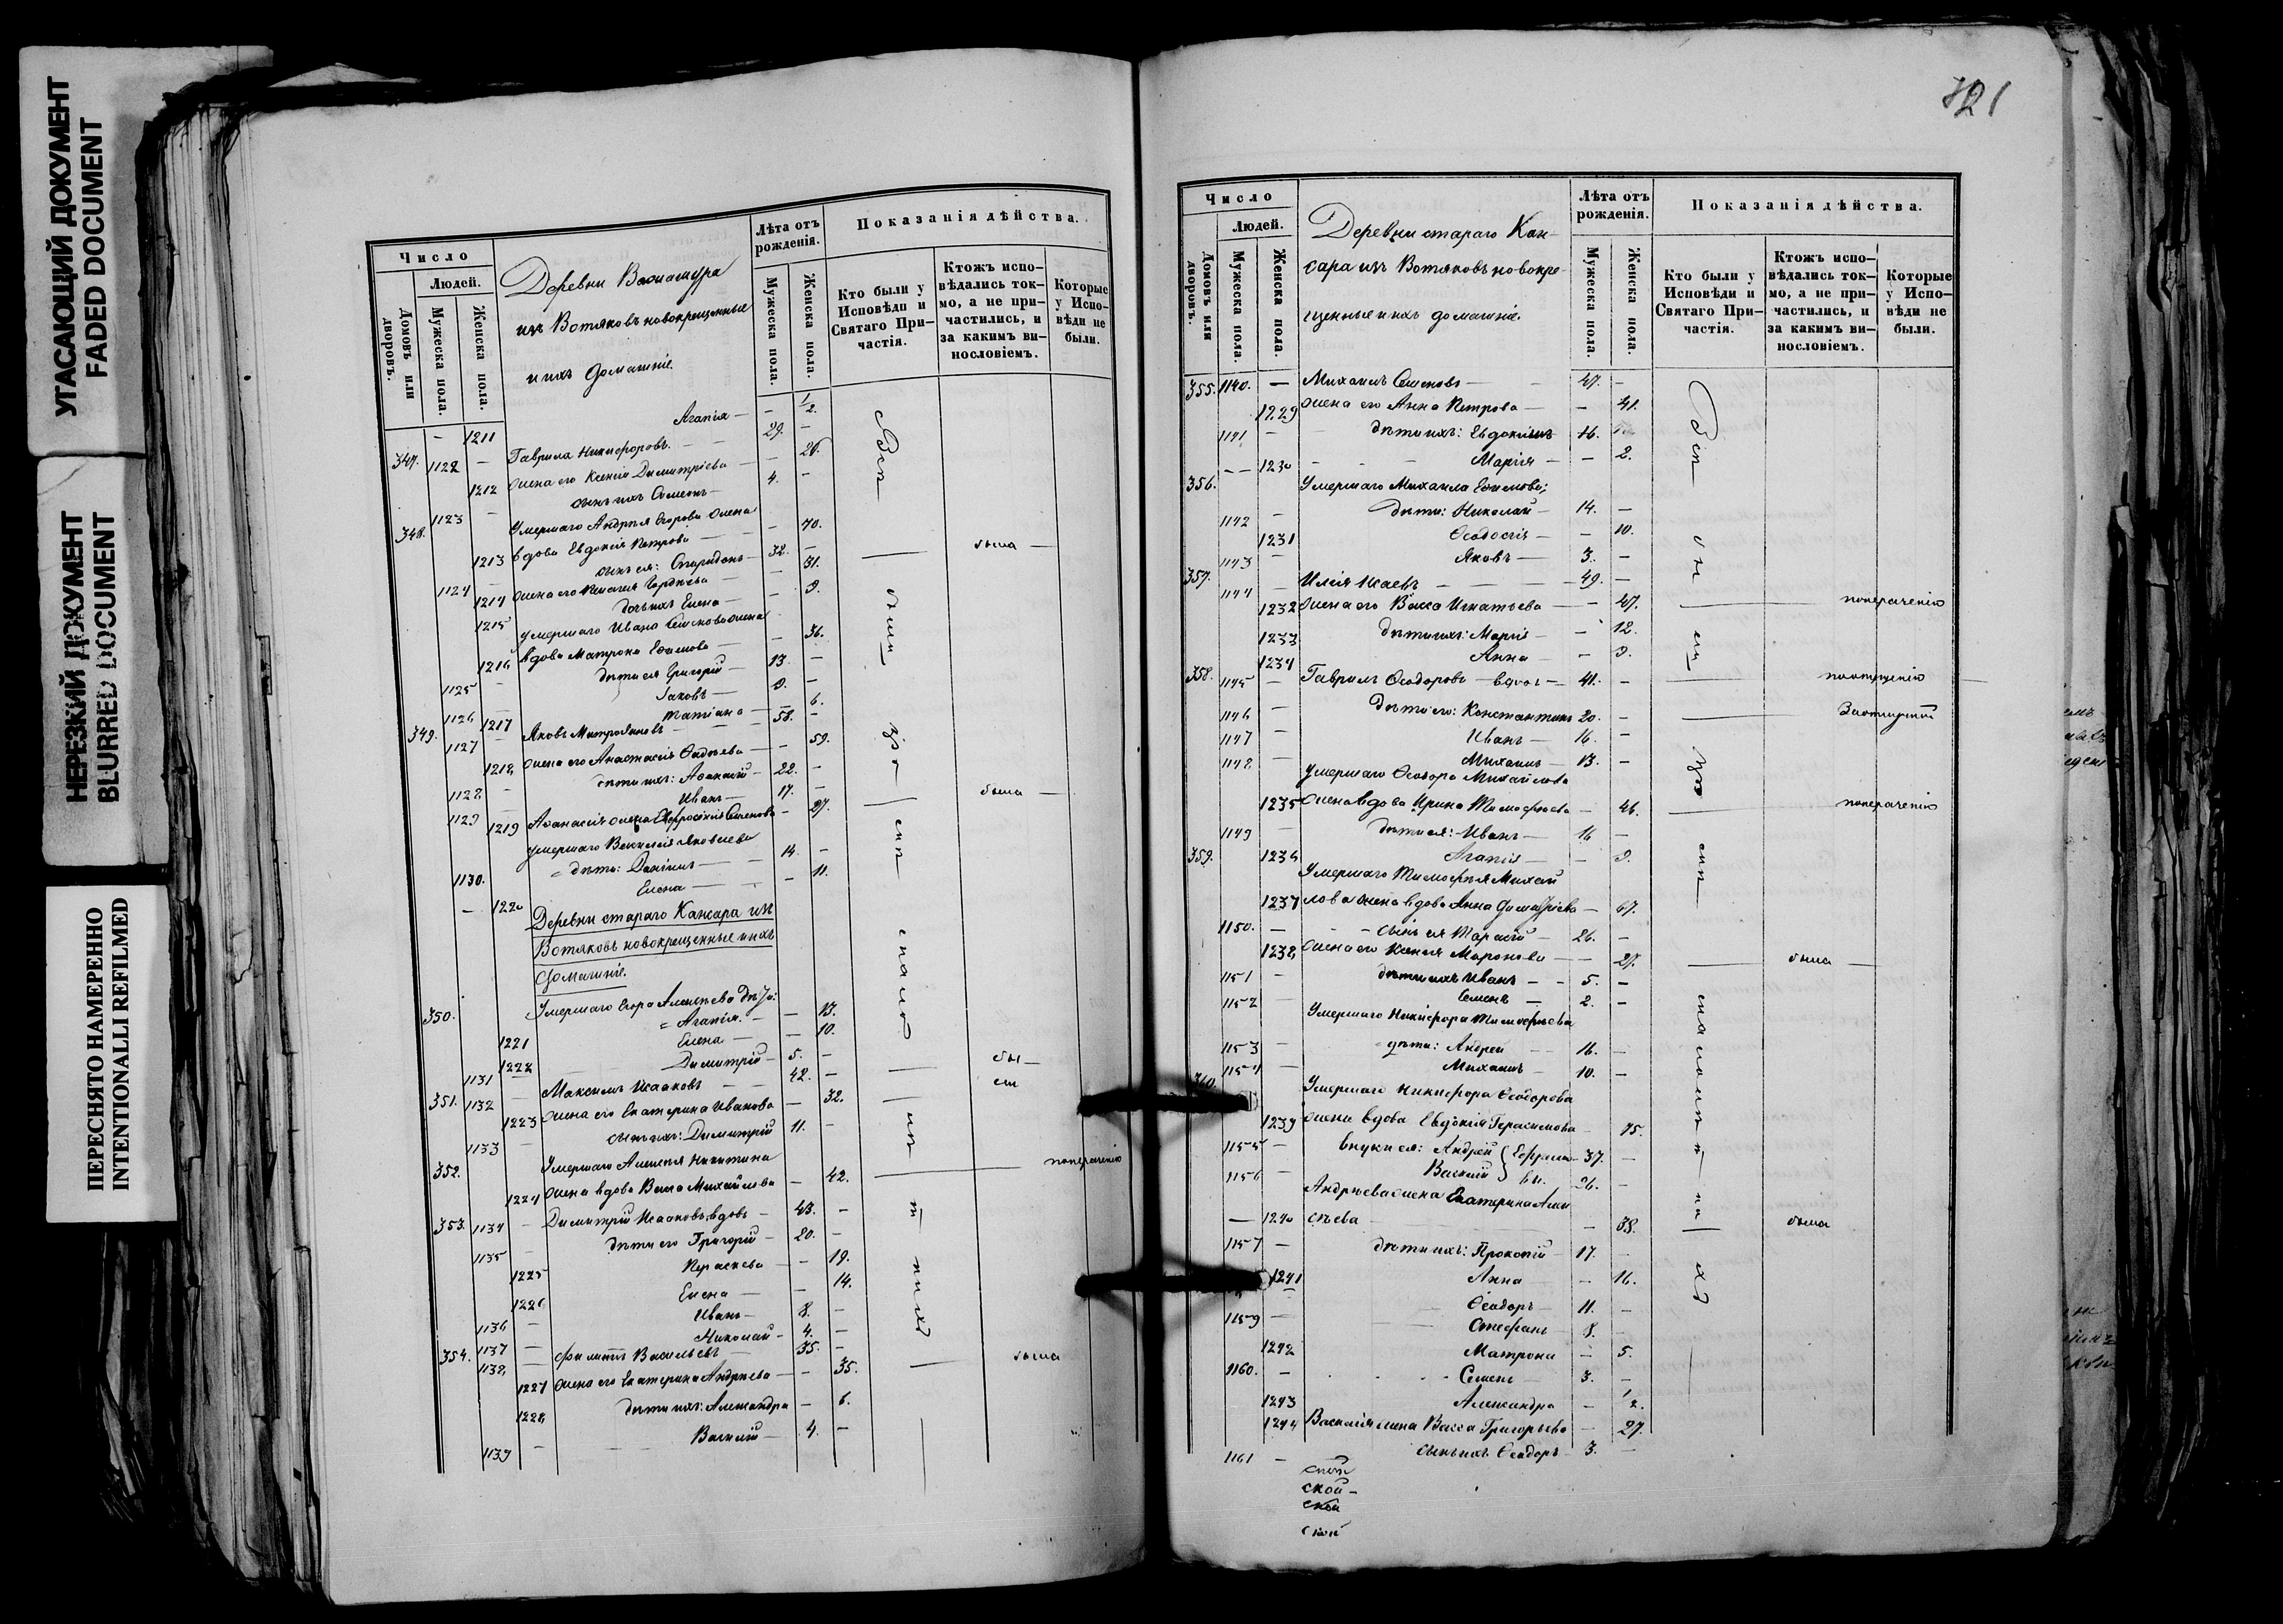 УГАСАЮЩИЙ ДОКУМЕНТ
FADED DOCUMENT
НЕРЕЗКИЙ ДОКУМЕНТ
BLURRED DOCUMENT
ПЕРЕСНЯТО НАМЕРЕННО
INTENTIONALLI REFILMED
Число
Людей.
Домовъ или дворовъ.
Мужеска пола.
Женска пола.
Деревни
изъ Вотяковъ новокрещенные
и ихъ домашніе.
Лѣта отъ рожденія.
Мужеска пола.
Женска пола.
Показанія дѣйства.
Кто были у Исповѣди и Святаго При-
частія.
Ктожъ испо-
вѣдались ток-
мо, а не при-
частились, и
за какимъ ви-
нословіемъ.
Которые
у Испо-
вѣди не
были.
— 1211 Агапія — — 1/2.
347. 1122 — Гаврила Никифоровъ. — 29. —
1212 жена его Ксенія Димитріева — — 26.
1123 — сынъ ихъ Симеонъ — 4. —
348. Умершаго Андрея Егорова жена
1213 вдова Евдокія Петрова — — 70. была —
1124 — сынъ ея: Спиридонъ — 32. —
1214 жена его — 31.
1215 дочь ихъ Елена — — 9.
умершаго Ивана Семенова жена
1216 вдова Матрона Ефимова — — 36.
1125 — дѣти ея Григорій — 13. —
1126 Іаковъ — 9. —
1217 Татіана — — 6.
349. 1127 — Яковъ Митрофановъ — 58. —
1218 жена его Анастасія — — 59.
1128 — дѣти ихъ: Аѳанасій — 22. —
1129 Иванъ — 17. —
1219 Аѳанасія жена Евфросинія Семенова — 27. была —
умершаго Василія Яковлева
1130. дѣти: Даніилъ — 14. —
— 1220 Елена — — 11.
Деревни стараго Кансара изъ
Вотяковъ новокрещенные и ихъ
домашніе.
350. Умершаго Егора Алексѣева дѣти:
1221 Агапія. — — 13.
1222 Елена — — 10.
1131 — Димитрій — 5. —
351. 1132 — Максимъ Исааковъ — 42. — бы —
1223 жена его Екатерина Иванова — 32. ли
1133 — сынъ ихъ: Димитрій 11. —
352. Умершаго Алексѣя Никитина
1224 жена вдова Васса Михайлова — 42. по нераченію
353. 1134 — Димитрій Исааковъ, вдовъ — 43. —
1135 — дѣти его Григорій — 20. —
1225 Параскева — — 19.
1226 Елена — — 14.
1136 — Иванъ — 8. —
1137 — Николай — 4. —
354. 1138 — Филиппъ Васильевъ — 35. —
1227 жена его Екатерина Андреева — — 35. была
1228 дѣти ихъ: Александра — 6.
1139 — Василій — 4. —
721
Число
Людей.
Домовъ или дворовъ.
Мужеска пола.
Женска пола.
Деревни стараго Кан-
сара изъ Вотяковъ новокре-
щенные и ихъ домашніе.
Лѣта отъ рожденія.
Мужеска пола.
Женска пола.
Показанія дѣйства.
Кто были у
Исповѣди и
Святаго При-
частія.
Ктожъ испо-
вѣдались ток-
мо, а не при-
частились, и
за какимъ ви-
нословіемъ.
Которые
у Испо-
вѣди не
были.
355. 1140. — Михаилъ Семеновъ — 47. —
1229 жена его Анна Петрова — — 41.
1141 — дѣти ихъ: Евдокимъ 16.
— — 1230 Марія — — 2.
356. Умершаго Михаила Ефимова;
1142 — дѣти: Николай — 14. —
1231 Ѳеодосія — — 10.
1143 — Яковъ — 3. —
357. 1144 — Илія Исаевъ — 49. —
1232 жена его Васса Игнатьева — — 47. по нераченію
1233 дѣти ихъ: Марія — — 12.
1234 Анна — — 9.
358. 1145 — Гавріилъ Ѳеодоровъ — вдовъ — 41. —
1146 — дѣти его: Константинъ 20. —
1147 — Иванъ — 16. —
1148 — Михаилъ — 13. —
умершаго Ѳеодора Михайлова
1235 жена вдова Ирина Тимофеева — 46. по нераченію
1149 — дѣти ея: Иванъ — 16 —
359. 1236 Агапія — — 9.
Умершаго Тимофея Михай
1237 лова жена вдова Анна Димитріева — 67.
1150. — сынъ ея Тарасій — 26. —
1238 жена его Ксенія Миронова — — 27. была
1151 — дѣти ихъ Иванъ — 5. —
1152 — Семенъ — 2. —
Умершаго Никифора Тимофеева
1153 — дѣти: Андрей — 16. —
1154 — Михаилъ — 10. —
360. Умершаго Никифора Ѳеодорова
1239 жена вдова Евдокія Герасимова — 75.
1155 — внуки ея: Андрей 37. —
1156 — Василій 26. —
Андреева жена Екатерина Алек
— 1240 сѣева — — 38. была
1157 — дѣти ихъ: Прокопій — 17. —
1241 Анна — 16.
Ѳеодоръ — 11. —
1159 — Стефанъ — 8. —
1242 Матрона — 5.
1160. — Семенъ — 3. —
1243 Александра — 1/2.
1244 Василія жена Васса Григорьева — 27.
1161 — сынъ ихъ Ѳеодоръ — 3. —
ской —